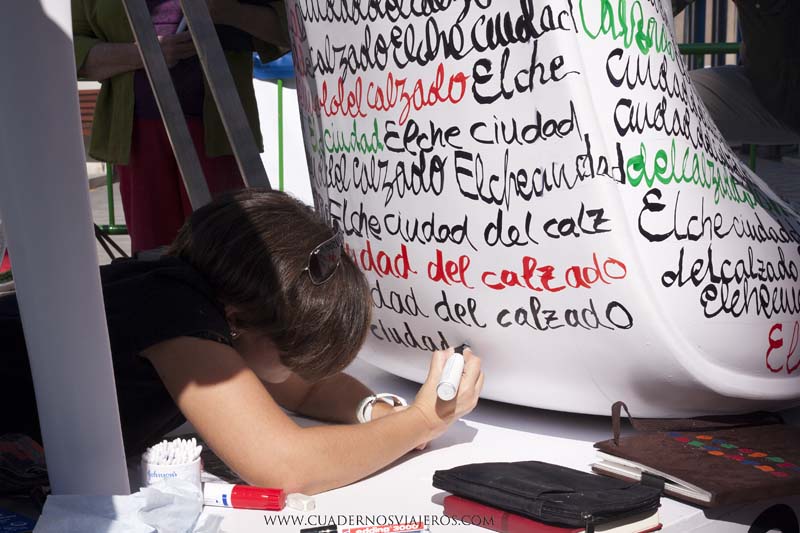 Elche ciudad
calzado Elche ciudad
del calzado Elche
ciudad Elche ciudad
del calzado Elche ciudad
Elche ciudad del calz
ciudad del calzado
ciudad del calzado
ciudad
calzado
ciudad
ciudad
del calzado
Elche ciudad
del calzado
Elche ciudad
El
edding 3000
WWW.CUADERNOSVIAJEROS.COM